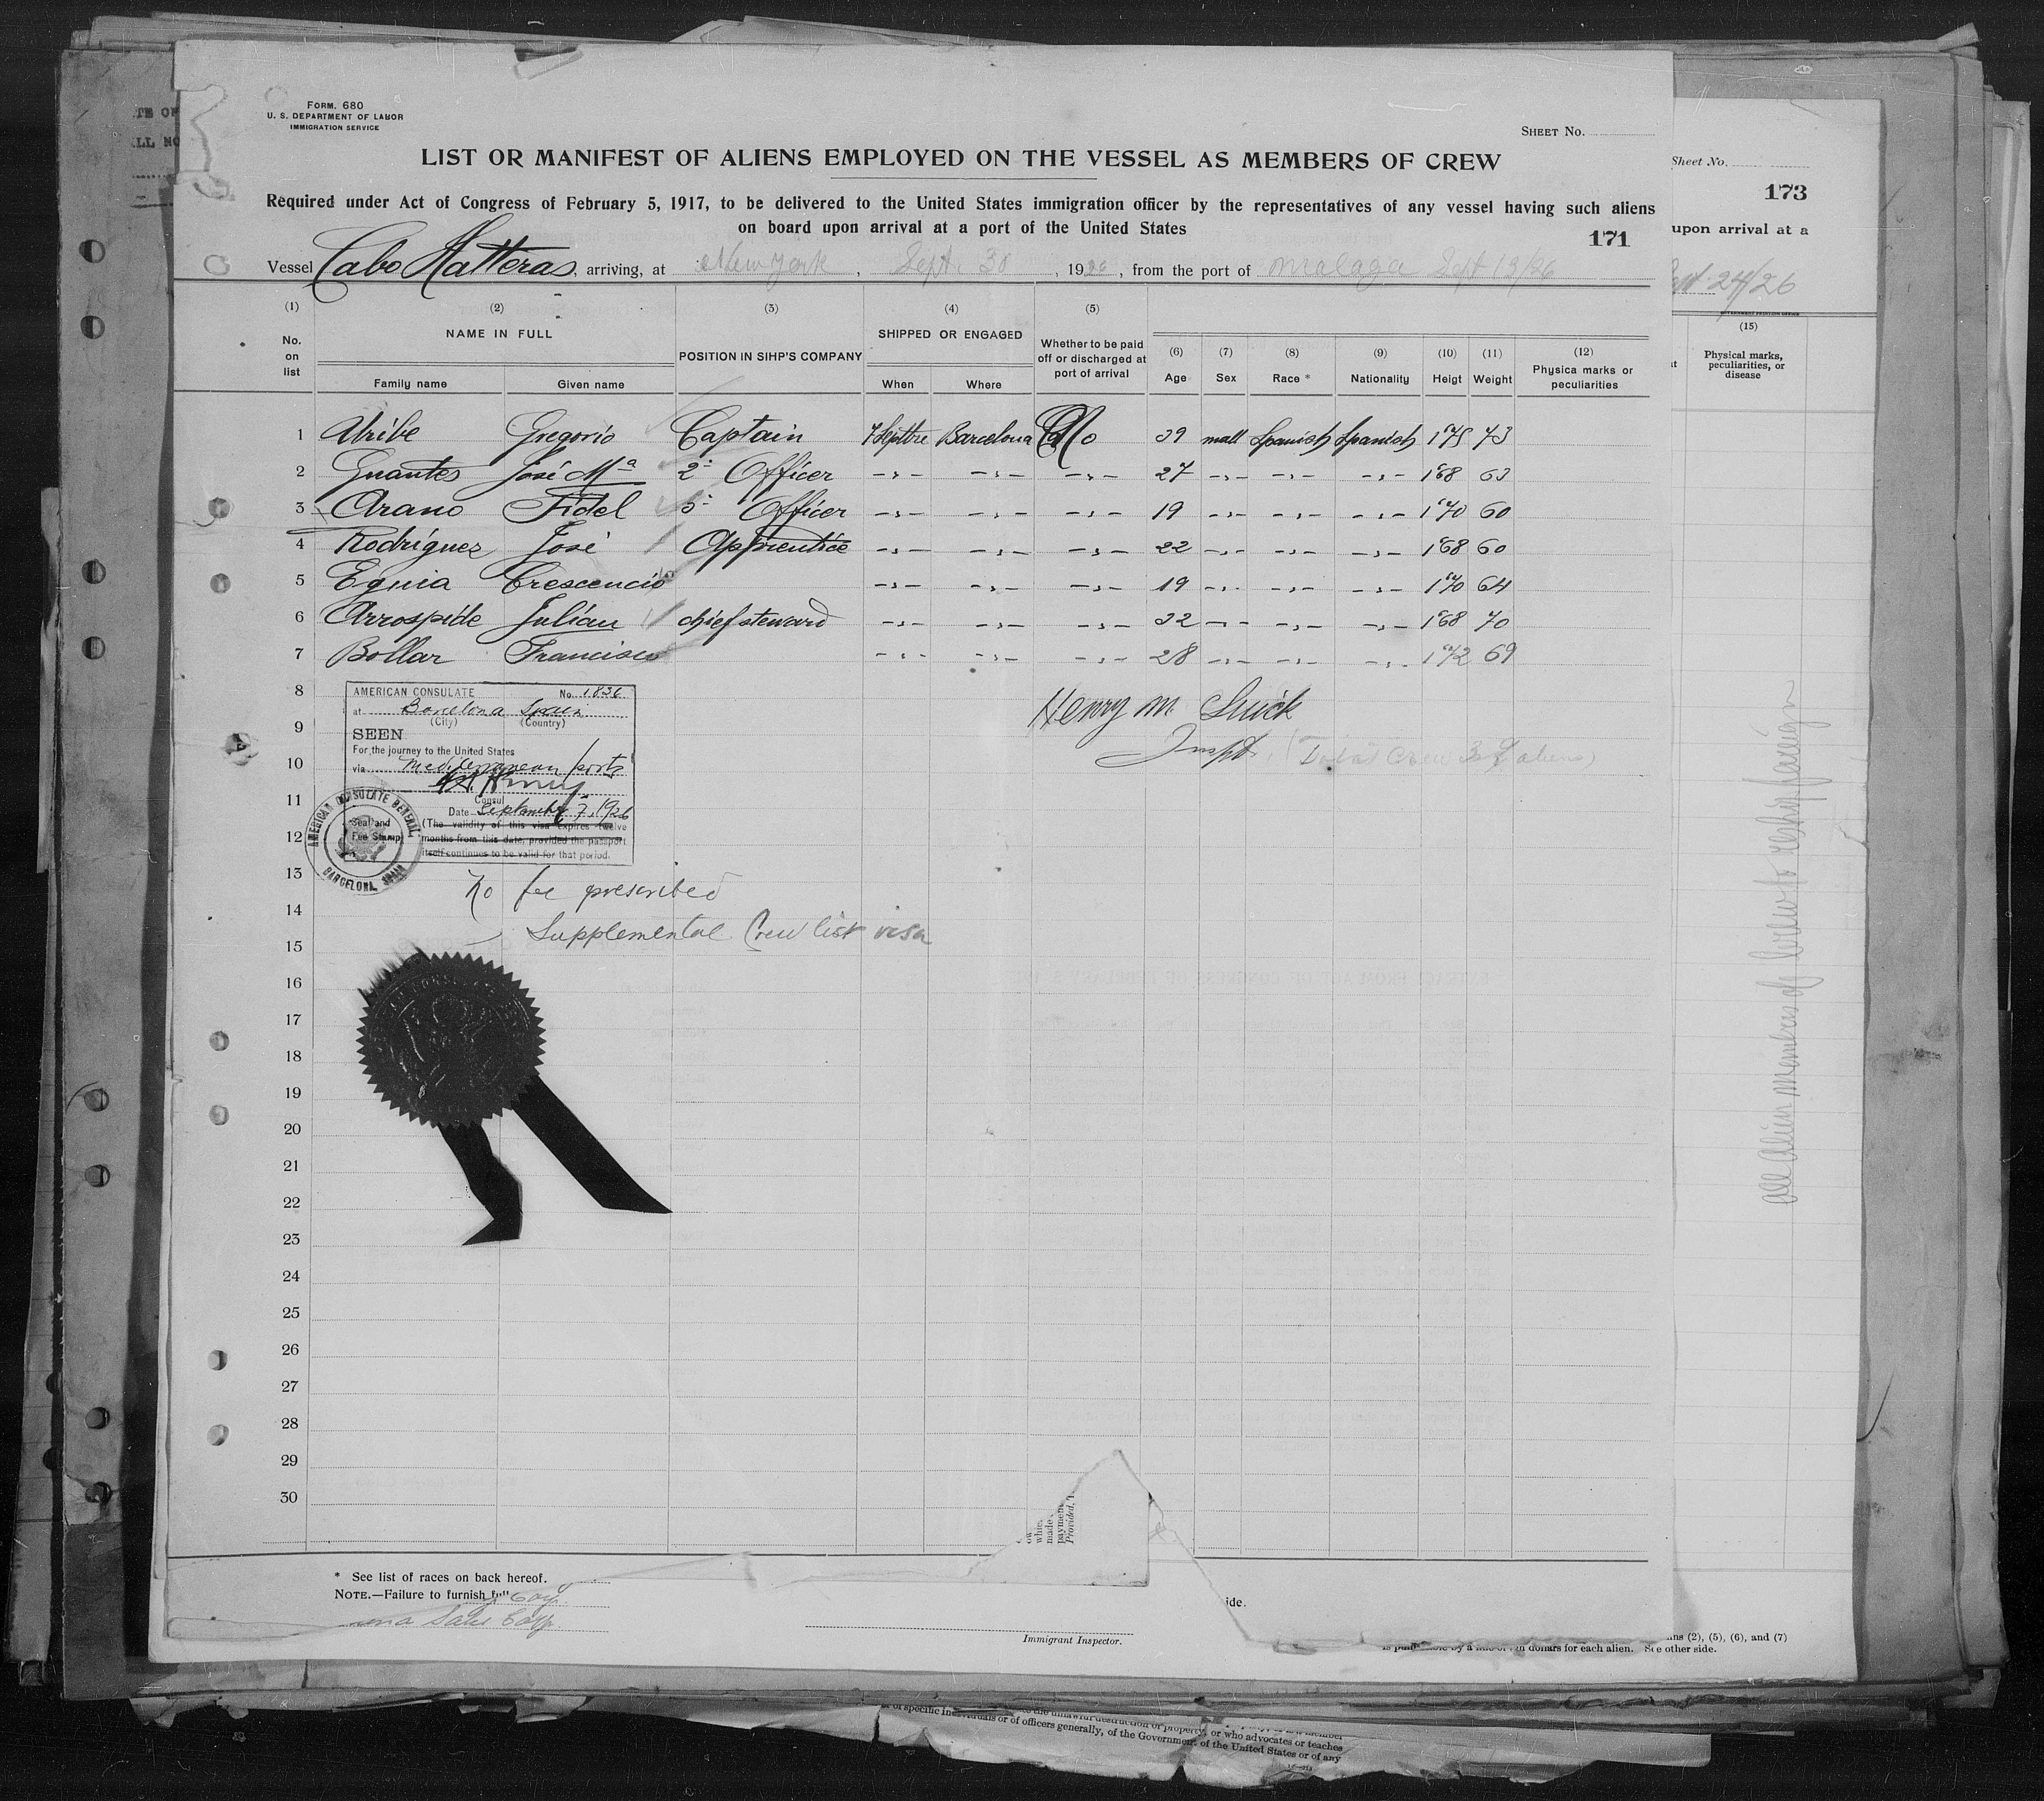 FORM. 680
U. S. DEPARTMENT OF LABOR
IMMIGRATION SERVICE
SHEET No.
LIST OR MANIFEST OF ALIENS EMPLOYED ON THE VESSEL AS MEMBERS OF CREW
Required under Act of Congress of February 5, 1917, to be delivered to the United States immigration officer by the representatives of any vessel having such aliens
on board upon arrival at a port of the United States
171
Vessel Cabo Hatteras, arriving, at New York, Sept. 30, 1926, from the port of Malaga Sept 13/26
(1) (2) (3) (4) (5)
No. on list NAME IN FULL POSITION IN SIHP'S COMPANY SHIPPED OR ENGAGED Whether to be paid off or discharged at port of arrival (6) Age (7) Sex (8) Race * (9) Nationality (10) Heigt (11) Weight (12) Physica marks or peculiarities
Family name Given name When Where
1 Uribe Gregorio Captain 7 Septbre Barcelona No 39 mall Spanish Spanish 175 73
2 Guantes José Mª 2º Officer -,- -,- -,- 27 -,- -,- -,- 168 63
3 Arano Fidel 3º Officer -,- -,- -,- 19 -,- -,- -,- 170 60
4 Rodriguez José Apprentice -,- -,- -,- 22 -,- -,- -,- 168 60
5 Eguia Crescencio -,- -,- -,- 19 -,- -,- -,- 170 64
6 Arrospide Julián chief steward -,- -,- -,- 32 -,- -,- -,- 168 70
7 Bollar Francisco -,- -,- -,- 28 -,- -,- -,- 172 69
8
9
10
11
12
13
14
15
16
17
18
19
20
21
22
23
24
25
26
27
28
29
30
AMERICAN CONSULATE No. 1836
at Barcelona Spain
(City) (Country)
SEEN
For the journey to the United States
via Mediterranean ports
Consul
Date September 7, 1926
(The validity of this visa expires twelve
months from this date, provided the passport
itself continues to be valid for that period.
Seal and
Fee Stamp
AMERICAN CONSULATE GENERAL
BARCELONA, SPAIN
No fee prescribed
Supplemental Crew list visa
Henry M.
Inspt. (Total Crew aliens)
whic
made
paymen
Provided,
* See list of races on back hereof.
NOTE.—Failure to furnish full
Sales Corp.
ide.
Immigrant Inspector.
Sheet No.
173
upon arrival at a
Sept 24/26
(15)
Physical marks, peculiarities, or disease
All alien members of crew to reship foreign
ns (2), (5), (6), and (7)
dollars for each alien. See other side.
of specific individuals or of officers generally, of the Government of the United States or of any
the unlawful destruction of property, or who advocates or teaches